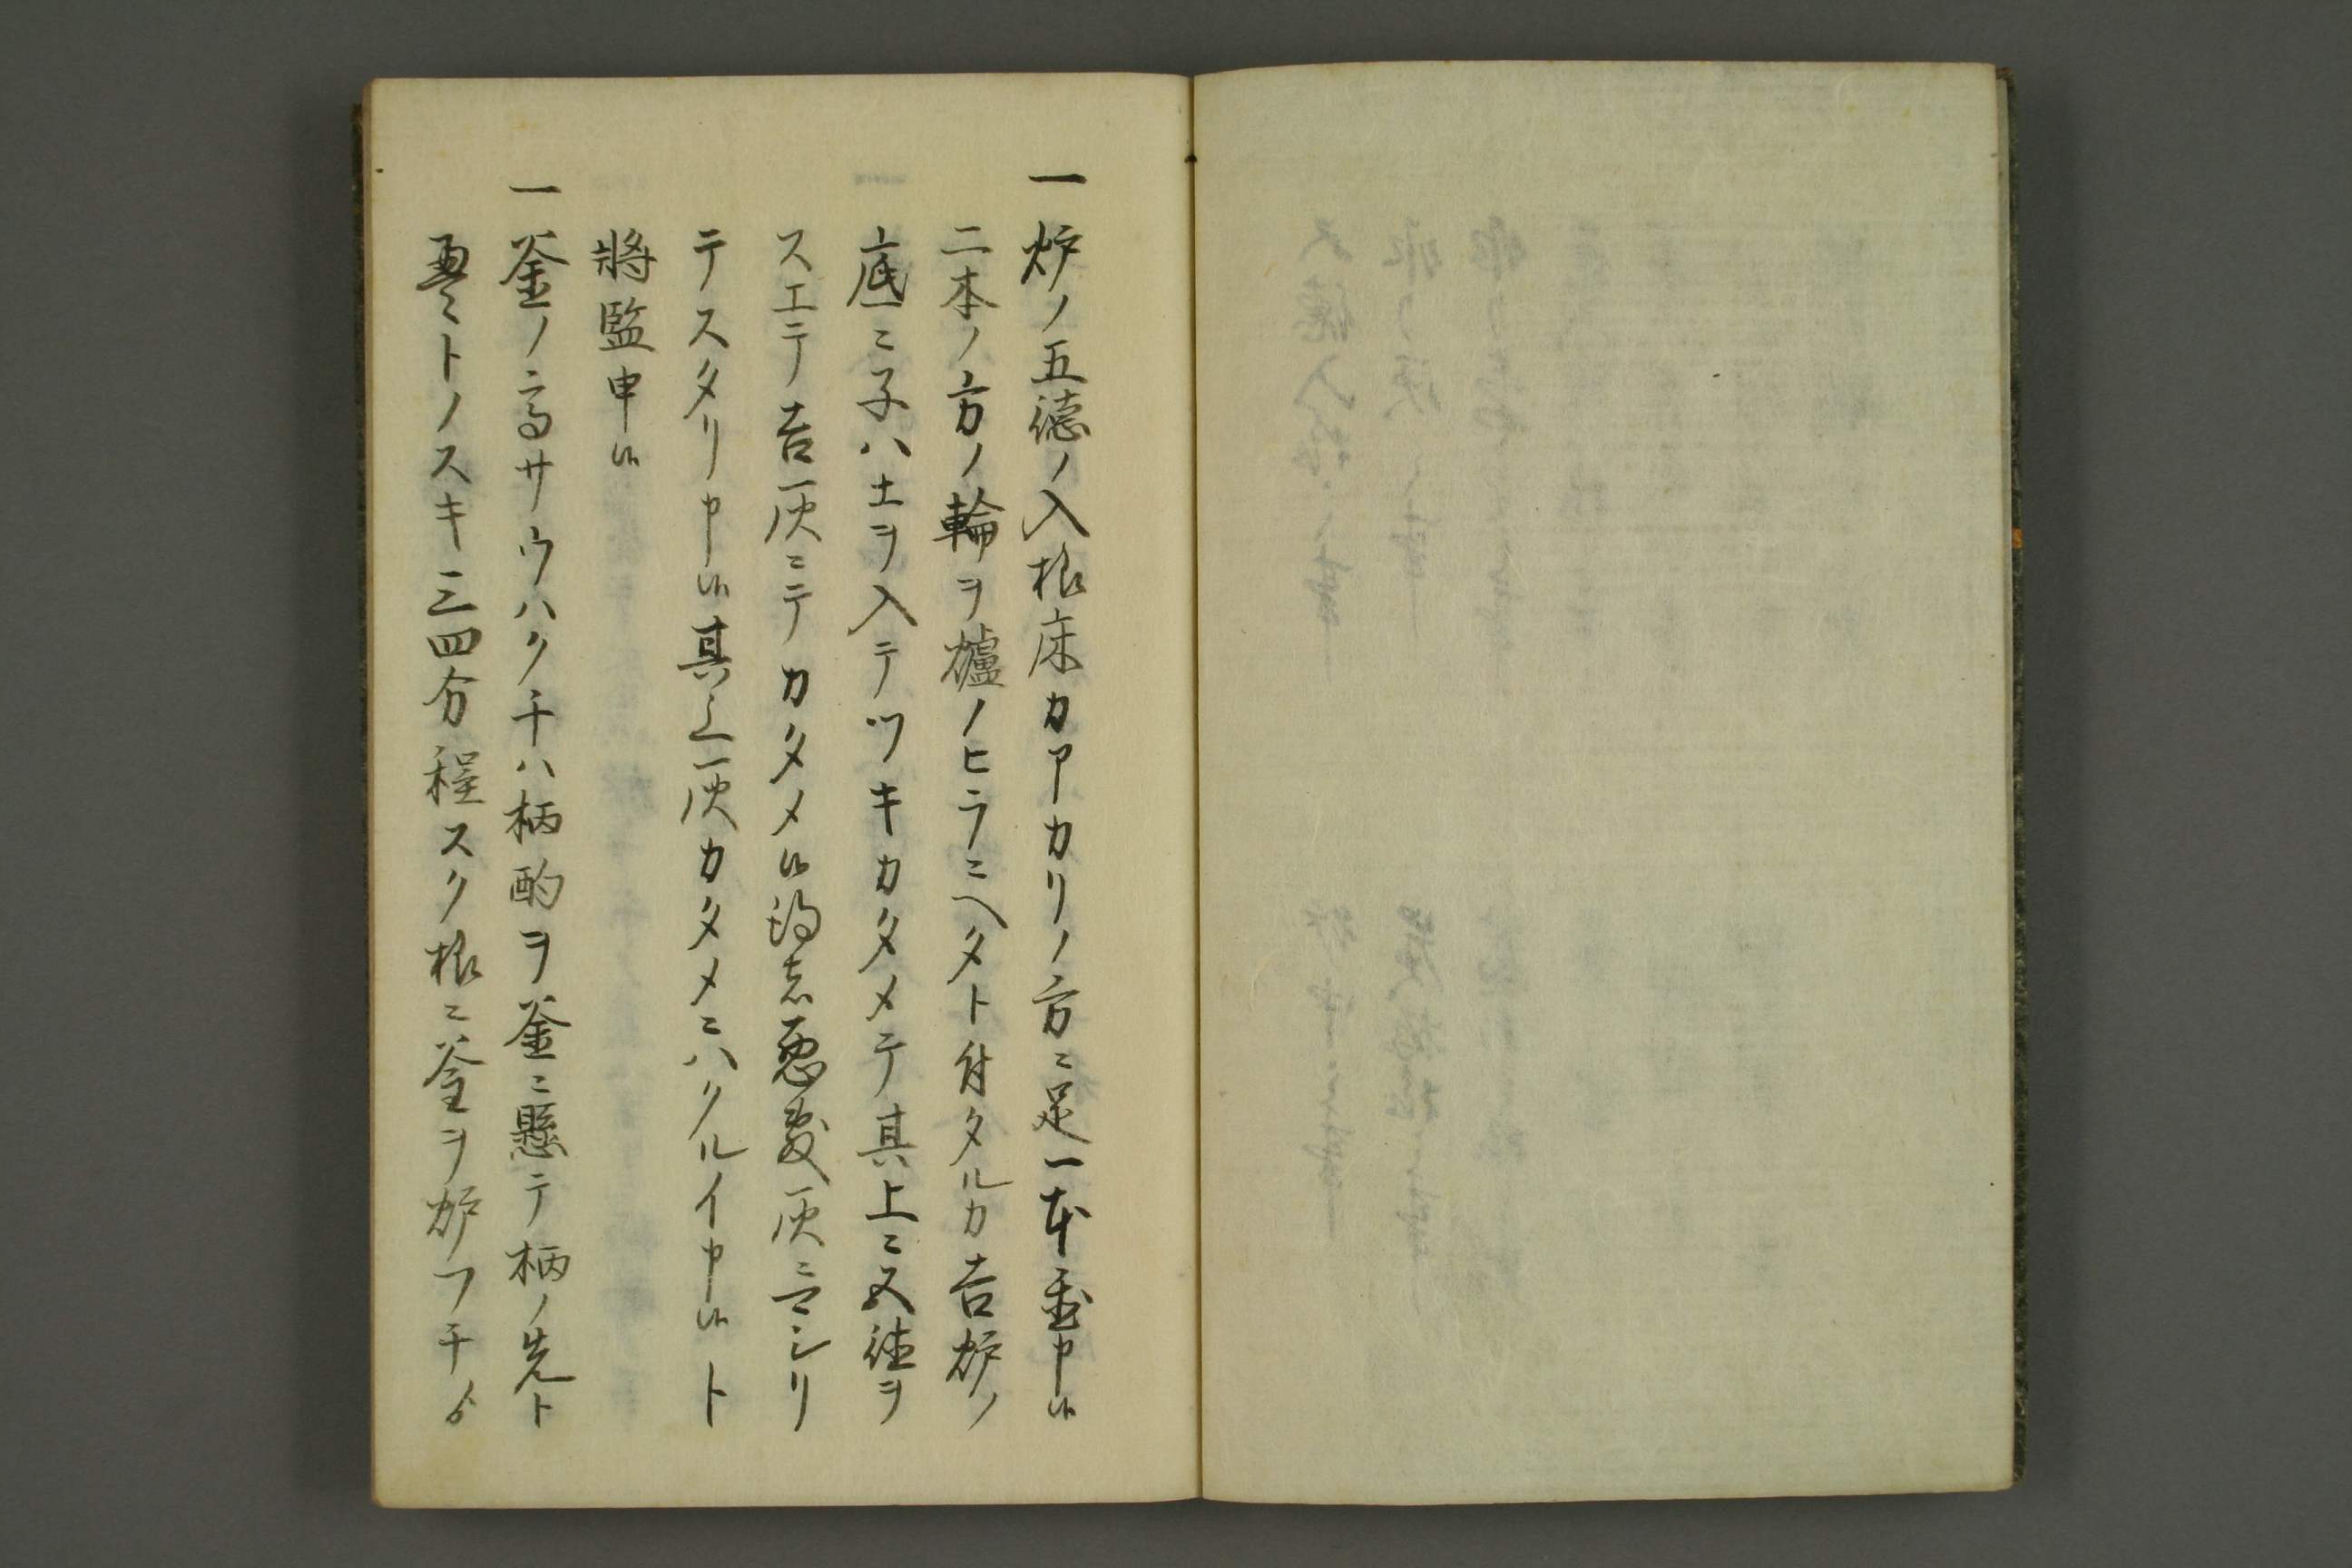 一炉ノ五徳ノ入様床カアカリノ方ニ足一本置申候
二本ノ方ノ輪ヲ爐ノヒラニヘタト付タルカ吉炉ノ
底ニ子ハ土ヲ入テツキカタメテ其上ニ五徳ヲ
スエテ吉灰ニテカタメ候得者悪敷灰ニマシリ
テスタリ申候其上灰カタメニハクルイ申候ト
將監申候
一釜ノ高サウハクチハ柄酌ヲ釜ニ懸テ柄ノ先ト
畳トノスキ三四分程スク様ニ釜ヲ炉フチゟ